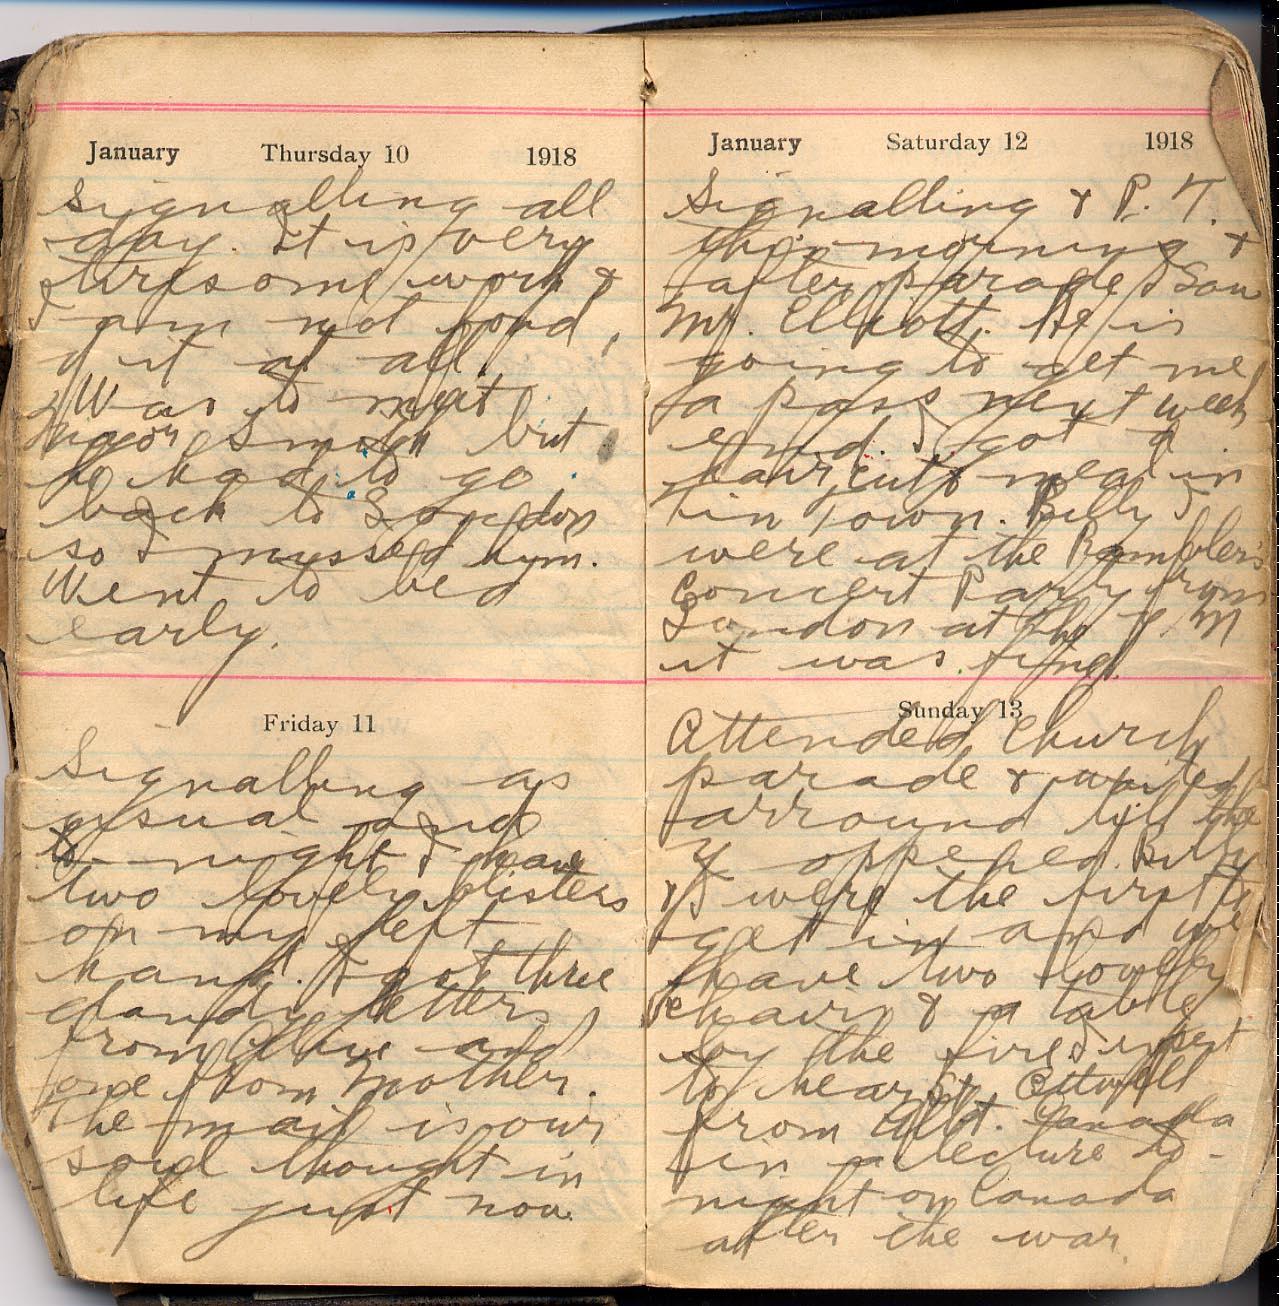 January Thursday 10 1918
signalling all
day. It is very
tiresome work &
I am not fond
of it at all
Was to meet
Major Smith but
he had to go
back to London
so I missed him.
Went to bed
early.
Friday 11
Signalling as
usual and
to-night I have
two lovely blisters
on my left
hand. I got three
dandy letters
from Olive and
one from Mother.
The mail is our
soul thought in
life just now.
January Saturday 12 1918
Signalling & P. T.
this morning &
after parade I saw
Mr. Elliott. He is
going to get me
a pass next week
end. I got a
hair cut & meal in
in Town. Billy & I
were at the Ramblers
Concert Party from
London at the Y. M
it was fine
Sunday 13
Attended Church
parade & waited
arround till the
Y oppened. Billy
& I were the first to
get in and we
have two lovely
chairs & a table
by the fire I went
to hear Attwell
from Albt. Canada
in a lecture to-
night on Canada
after the war.